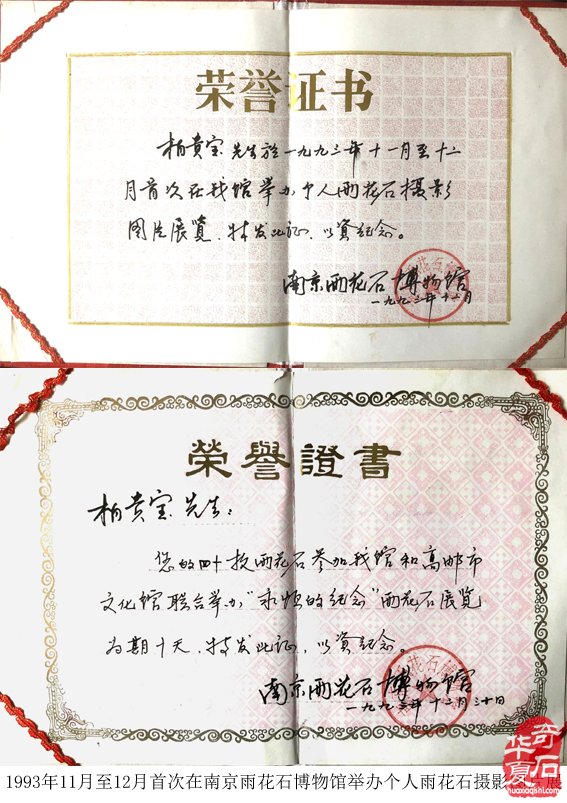 荣誉证书
柏贵宝先生於一九九三年十一月至十二
月首次在我馆举办个人雨花石摄影
图片展览,特发此证,以资纪念。
南京雨花石博物馆
一九九三年十二月
榮譽證書
柏贵宝先生:
您的四十枚雨花石参加我馆和高邮市
文化馆联合举办"永恒的纪念"雨花石展览
为期十天,特发此证,以资纪念。
南京雨花石博物馆
一九九三年十二月三十日
1993年11月至12月首次在南京雨花石博物馆举办个人雨花石摄影展
华夏奇石
huaxiaqishi.com